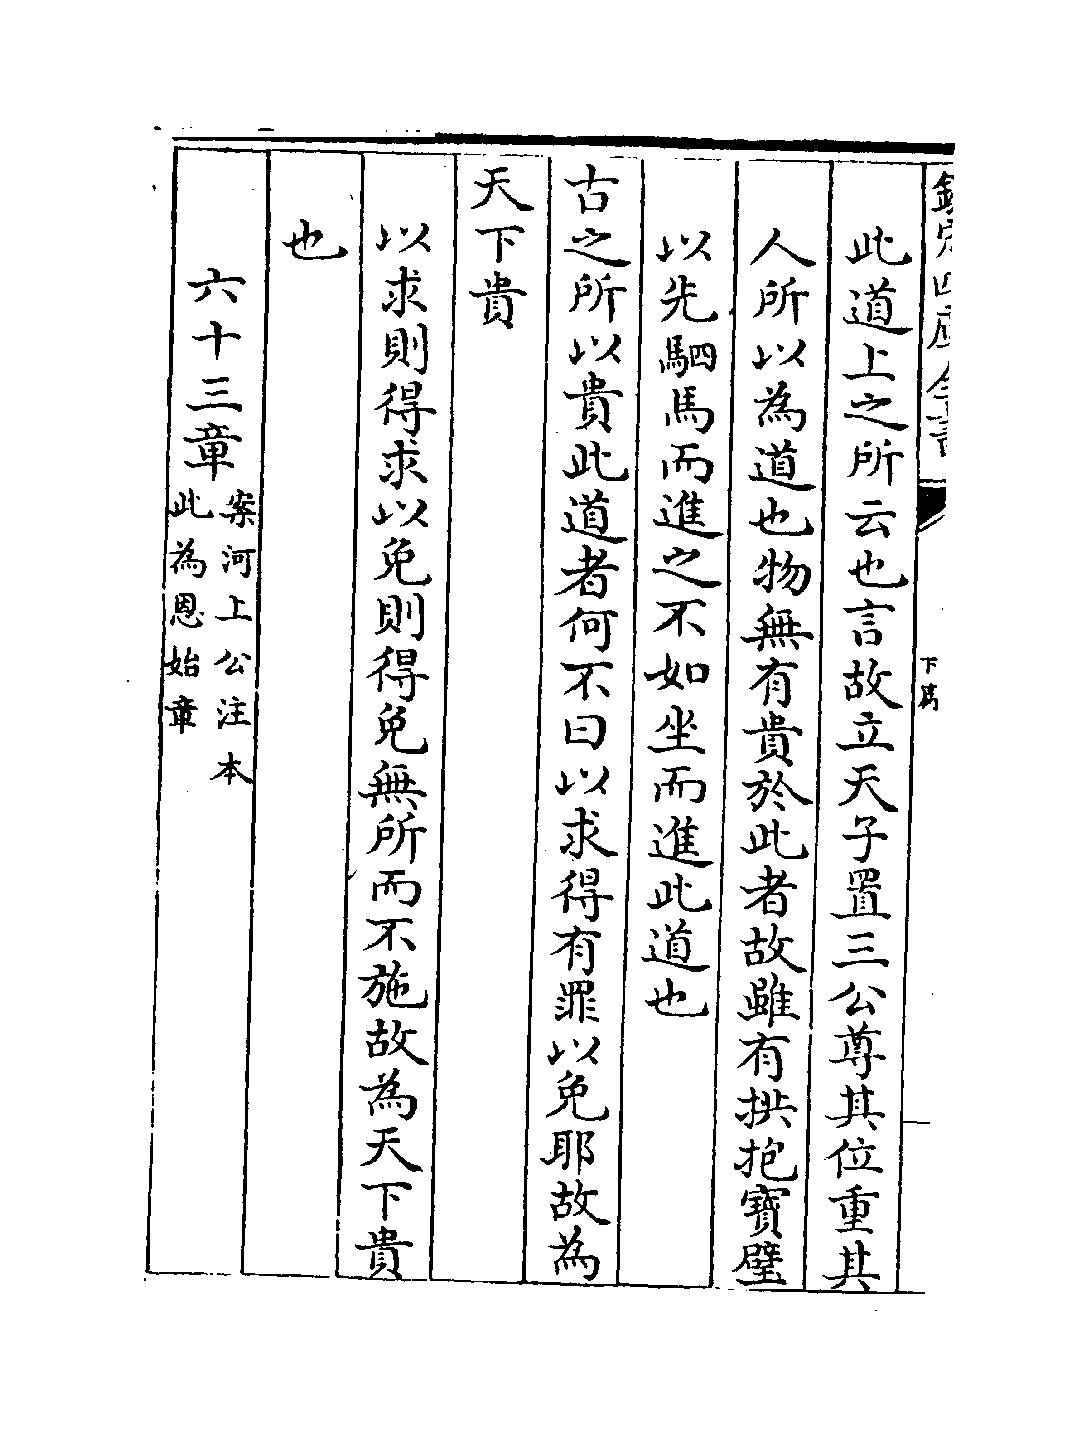 欽定四庫全書
下篇
此道上之所云也言故立天子置三公尊其位重其
人所以為道也物無有貴於此者故雖有拱抱寶璧
以先駟馬而進之不如坐而進此道也
古之所以貴此道者何不曰以求得有罪以免耶故為
天下貴
以求則得求以免則得免無所而不施故為天下貴
也
六十三章案河上公注本
此為恩始章